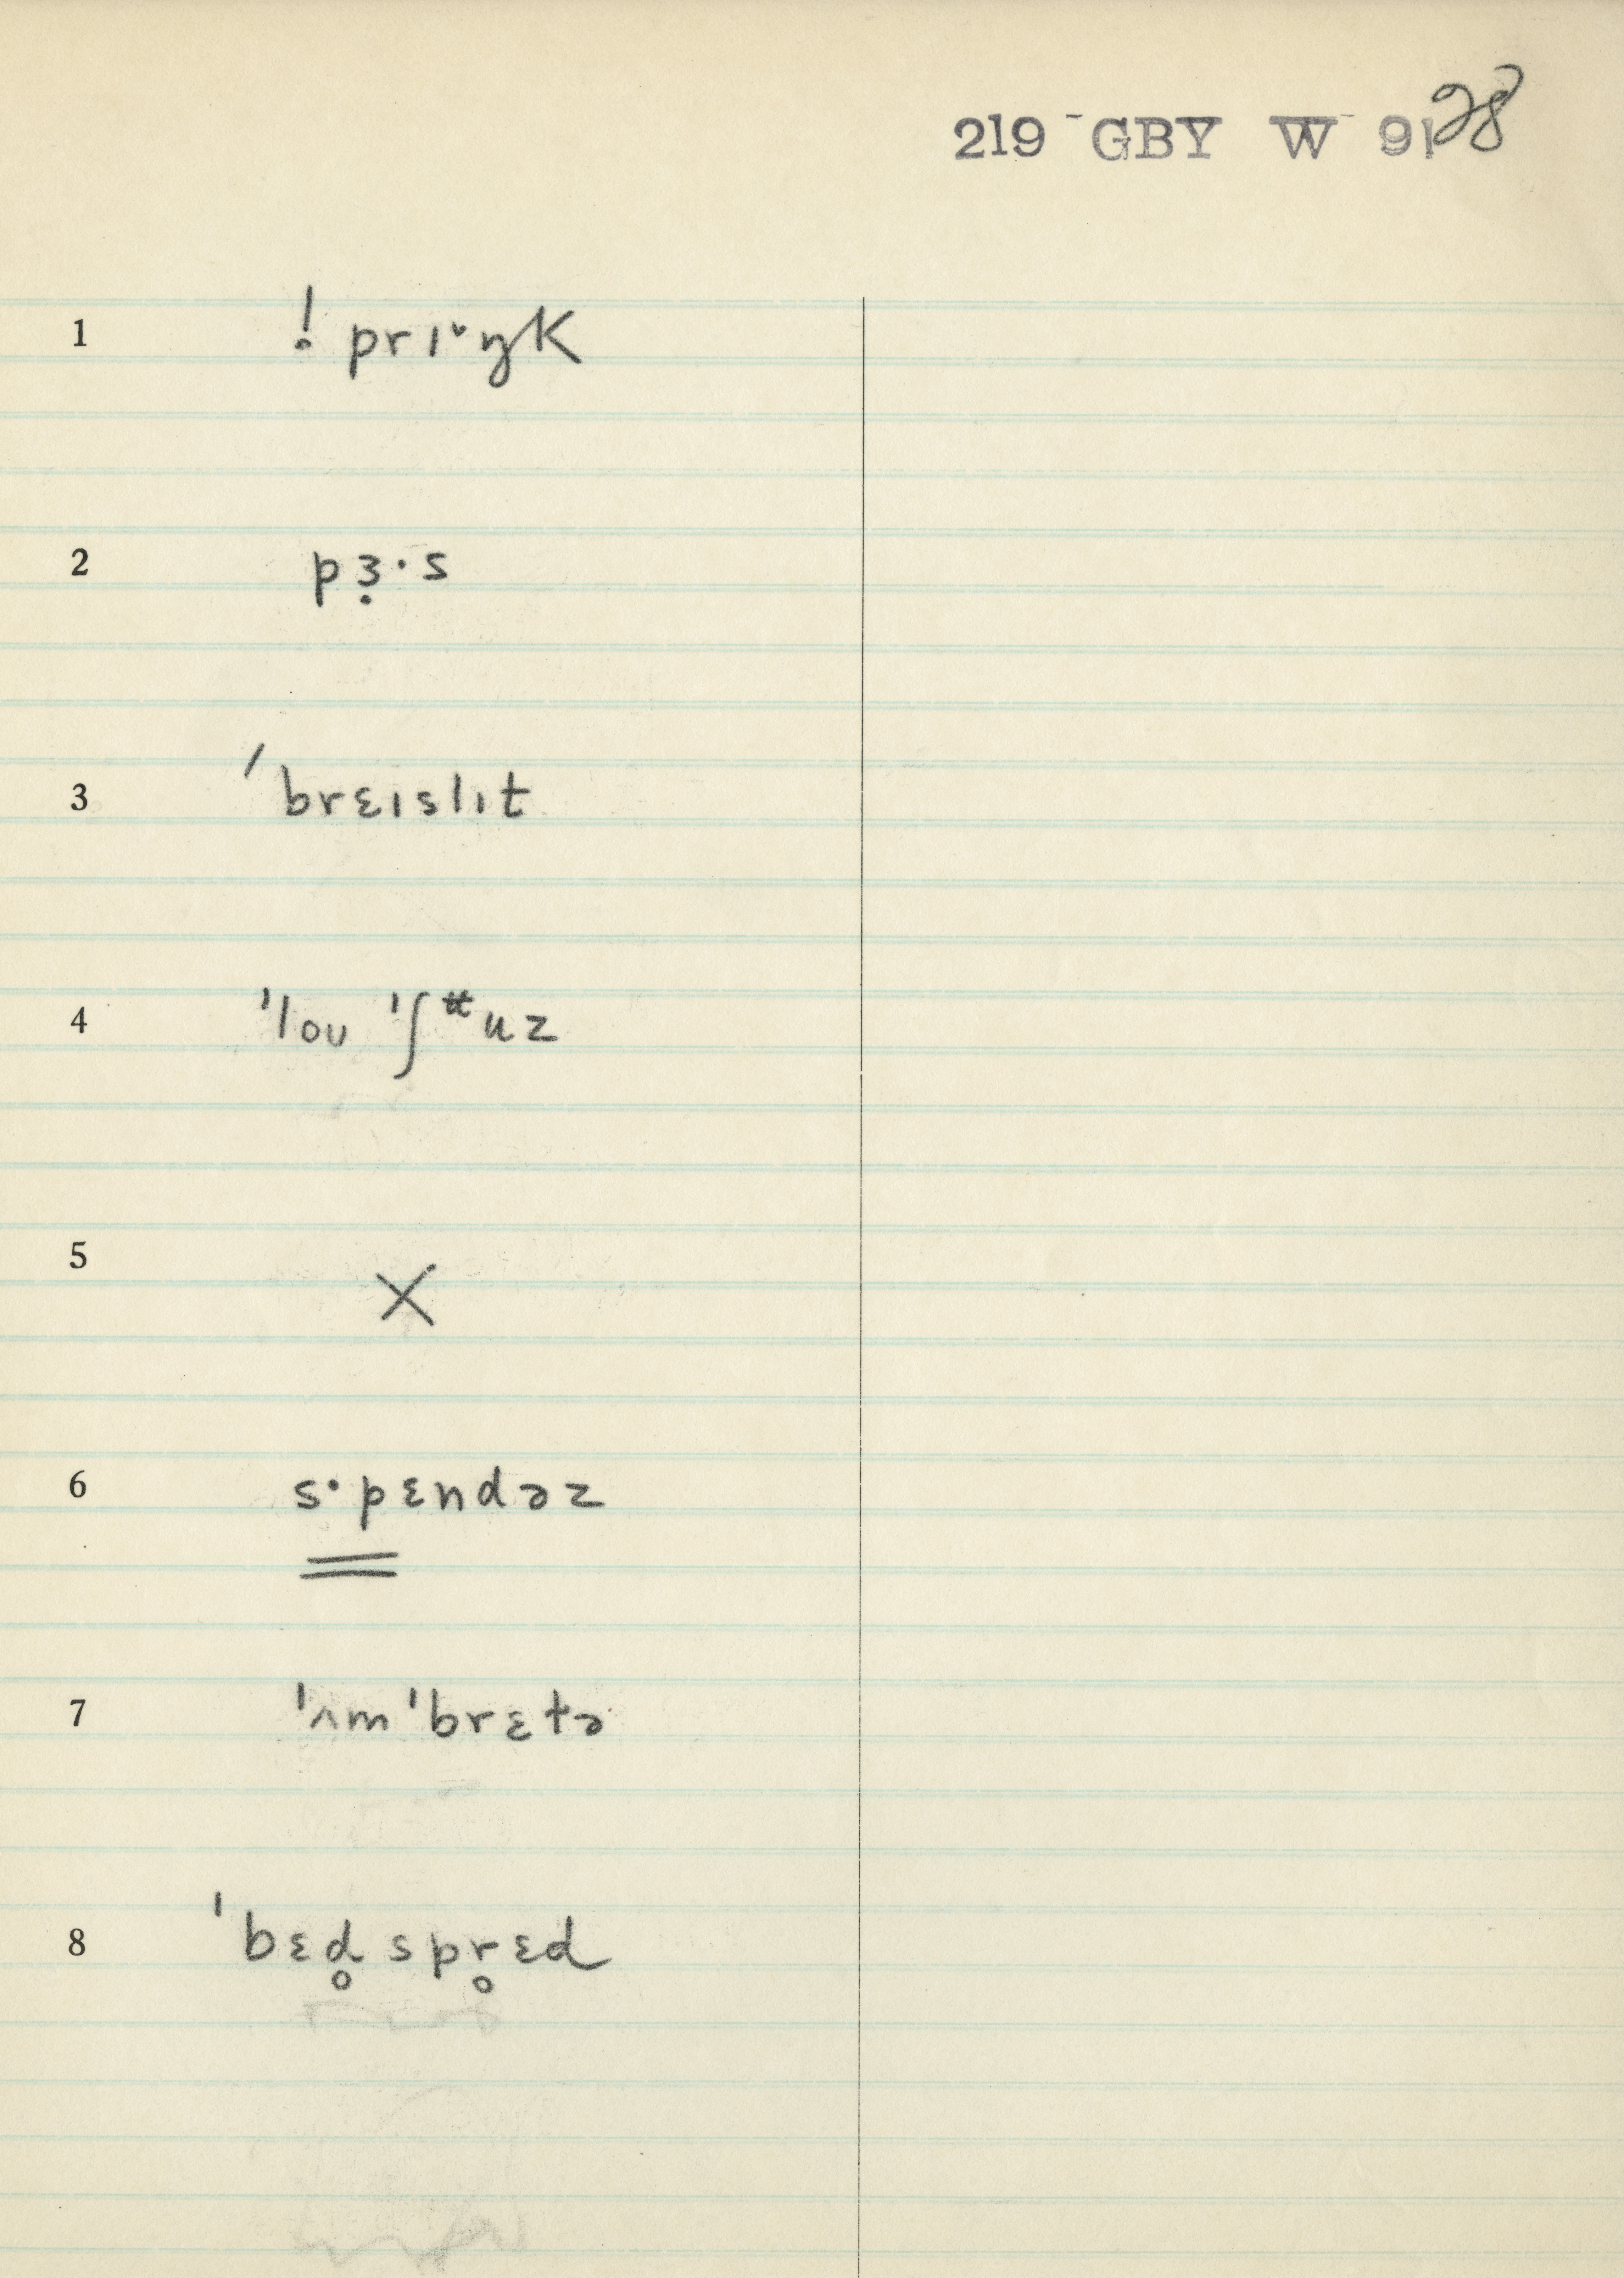 219 GBY W 9128
1 ! prɪˇŋk
2 pɜ̣·s
3 ˈbrɛɪslɪt
4 ˈloʊ ˈʃᵗᵗuz
5 X
6 s·pɛndəz
7 ˈʌm ˈbrɛtə
8 ˈbɛd̥ spr̥ɛd